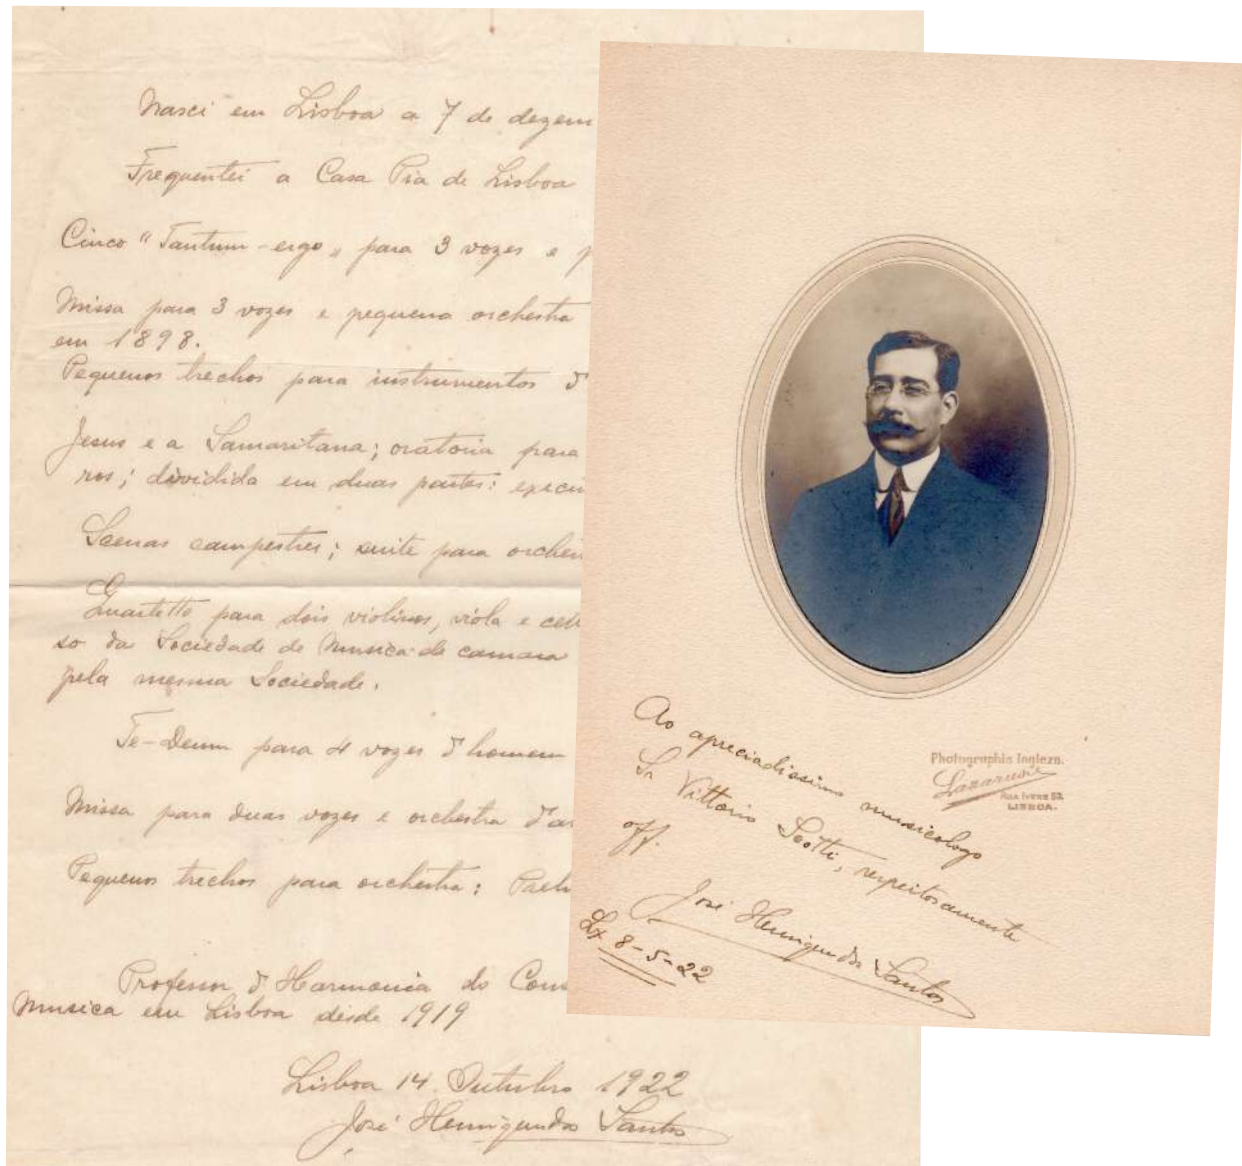 Nasci em Lisboa a 7 de dezem
Frequentei a Casa Pia de Lisboa
Cinco "Tantum-ergo" para 3 vozes e p
Missa para 3 vozes e pequena orchestra
em 1898.
Pequenos trechos para instrumentos d'
Jesus e a Samaritana; oratoria para
nos; dividida em duas partes: execu
Scenas campestres; suite para orches
Quartetto para dois violinos, viola e cel
so da Sociedade de Musica de camara
pela mesma Sociedade.
Te-Deum para 4 vozes d'homem
Missa para duas vozes e orchestra d'ar
Pequenos trechos para orchestra: Prel
Professor d'Harmonia do Cons
Musica em Lisboa desde 1919
Lisboa 14 Outubro 1922
José Henrique dos Santos
Ao apreciadissimo musicologo
Sr Vittorio Scotti, respeitosamente
off.
José Henrique dos Santos
Lx 8-5-22
Photographia Ingleza.
Lazarus
Rua Ivens 53
LISBOA.